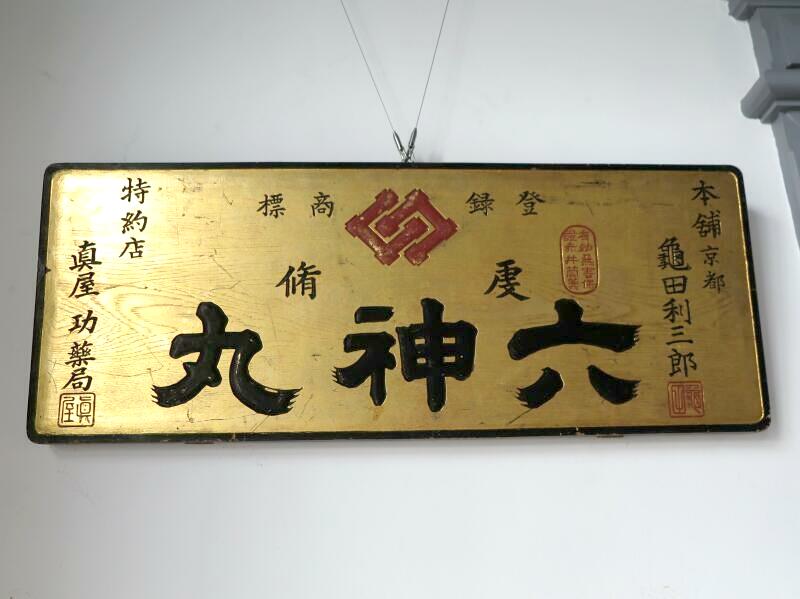 本舗京都
龜田利三郎
登録商標
虔脩
六神丸
特約店
眞屋功藥局
眞屋